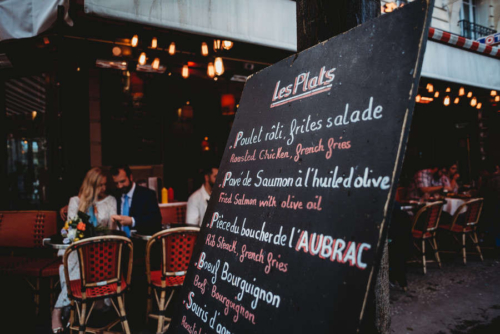 Les Plats
. Poulet rôti, frites salade
Roasted Chicken, french fries
. Pavé de Saumon à l'huile d'olive
Fried Salmon with olive oil
. Pièce du boucher de l'AUBRAC
Rib Steack, french fries
. Boeuf Bourguignon
Beef Bourguignon
. Souris d'agn
Roasted